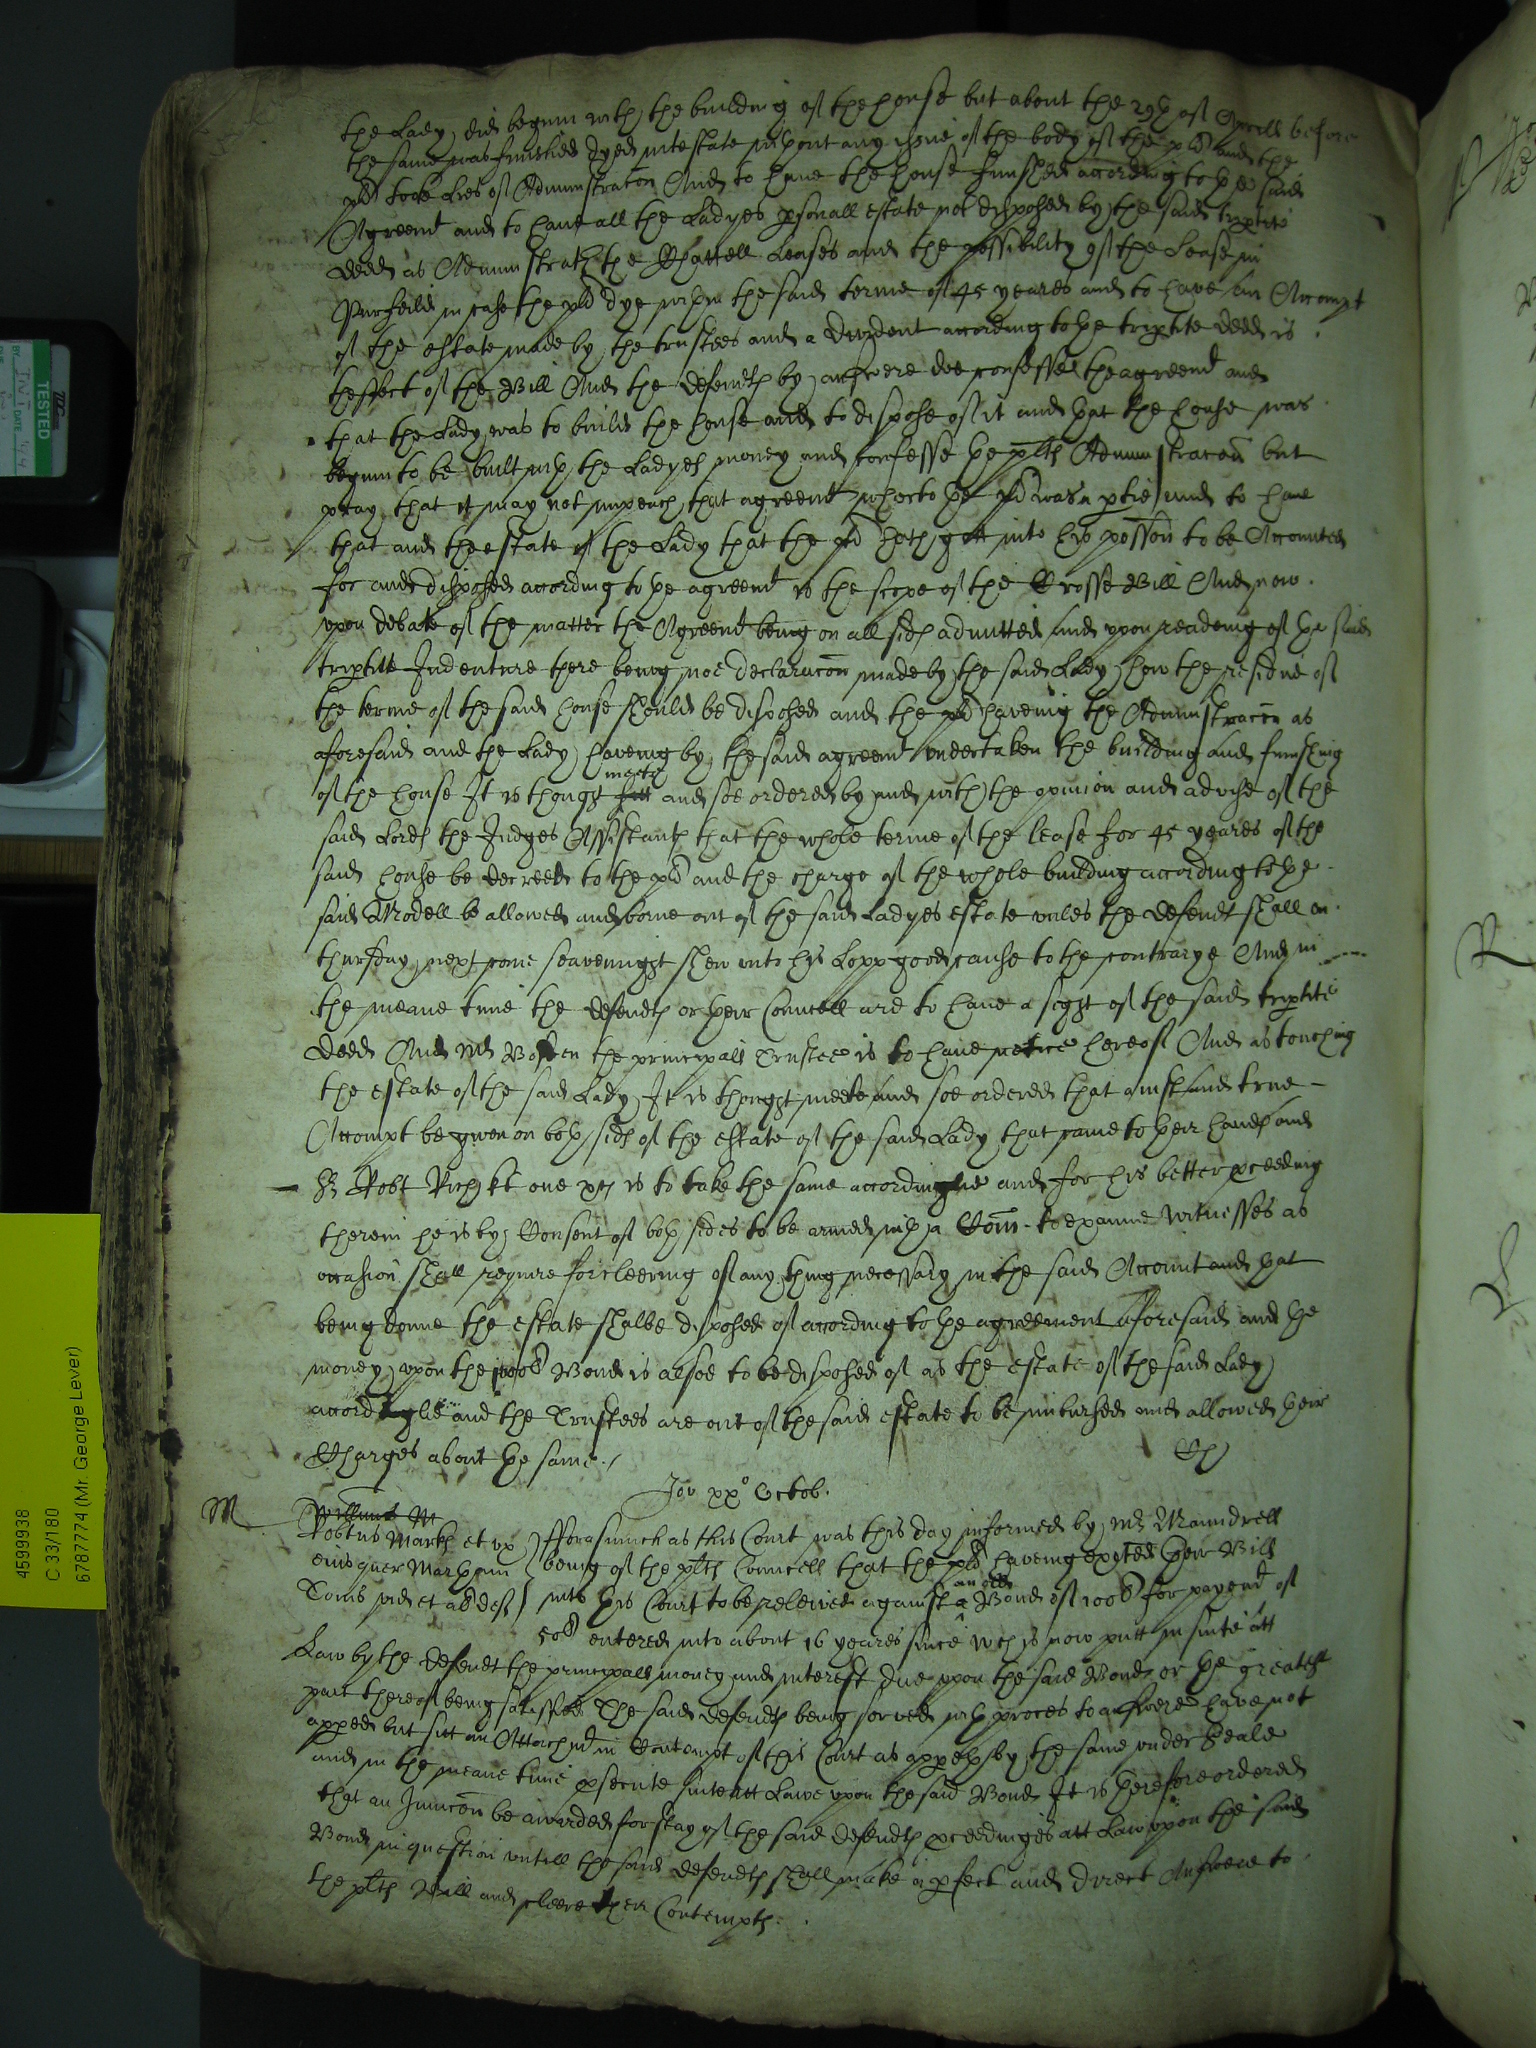 the Lady did beginn with the building of the house but about the 29th of Aprill before
the same was finished dyed intestate without any issue of the body of the plt and the
plt tooke Lres of Administracon And to have the house finished according to the said
Agreemt and to have all the Ladyes psonall estate not disposed by the said triptite
deed as Administratr the Chattell Leases and the possibility of the Lease in
in case the plt dye wthin the said terme of 45 yeares and to have an Accompt
of the estate made by the trustees and a dividend according to the triptite deed is
theffect of the Bill And the defendts by answere doe confesse the agreemt and
that the Lady was to build the house and to dispose of it and that the house was
begun to be built wth the Ladyes money and confesse the plts Administracon but
pray that it may not impeach that agreemt wherto the plt was a ptie and to have
that and the estate of the Lady that the plt hath gott into his posson to be Accounted
for and disposed according to the agreemt is the scope of the Crosse Bill And now
upon debate of the matter the Agreemt being on all sides admitted and upon reading of the said
triptite Indenture there being noe declaracon made by the said Lady how the residue of
the terme of the said house should be disposed and the plt haveing the Administracon as
aforesaid and the Lady haveing by the said agreemt undertaken the building and finishing
of the house It is thought fitt meete and soe ordered by and with the opinion and advise of the
said Lords the Judges Assistants that the whole terme of the lease for 45 yeares of the
said house be decreed to the plt and the charge of the whole building according to the
said Modell be allowed and borne out of the said Ladyes estate unles the defendt shall on
thursday next come seavennight shew unto his Lopp good cause to the contrarye And in
the meane time the defendts or their Councell are to have a sight of the said triptite
deed And Mr the principall Trustee is to have notice hereof And as touching
the estate of the said Lady It is thought meete and soe ordered that a just and true
Accompt be given on both sides of the estate of the said Lady that came to their hands and
Sr Robt Rich kt one of is to take the same accordinglie and for his better pceeding
therein he is by Consent of both sides to be armed wth a Com to examine witnesses as
occasion shall require for cleering of any thing necessary in the said Account and that
being donne the estate shalbe disposed of according to the agreement aforesaid and the
money upon the Bond is alsoe to be disposed of as the estate of the said Lady
accordinglie and the Trustees are out of the said estate to be imbursed and allowed their
Charges about the same./
Jov xx° Octob.
M
Willimus M
Robtus Marsh et ux
eius quer Mathew
Toms vid et al defts
fforasmuch as this Court was this day informed by Mr Maundrell
being of the plts Councell that the plts haveing exhited their Bill
into this Court to be releived against a an old Bond of 100li for payemt of
50li entered into about 16 yeares since wch is now putt in suite att
Law by the defendt the principall money and interest due upon the said Bond or the greatest
part thereof being satisfied The said defendts being served wth proces to answere have not
appeed but sitt an Attachmt in Contempt of this Court as appeth by the same under Seale
and in the meane time psecute suite att Lawe upon the said Bond It is therefore ordered
that an Iniuccon be awarded for stay of the said defendts pceedinges att Law upon the said
Bond in question untill the said defendts shall make a pfect and direct Answere to
the plts Bill and cleere their Contempts.
TESTED
DATE
4599938
C 33/180
6787774 (Mr. George Lever)